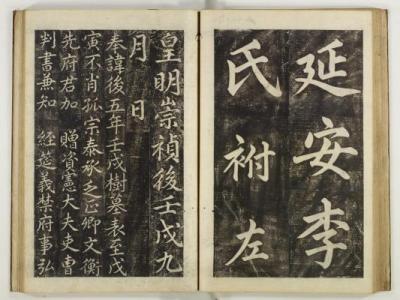 延安李
氏祔左
皇明崇禎後壬戌九
月 日
奉諱後五年壬戌樹墓表至戊
寅不肖孤宗泰承乏正卿文衡
先府君加 贈資憲大夫吏曹
判書兼知 經筵義禁府事弘